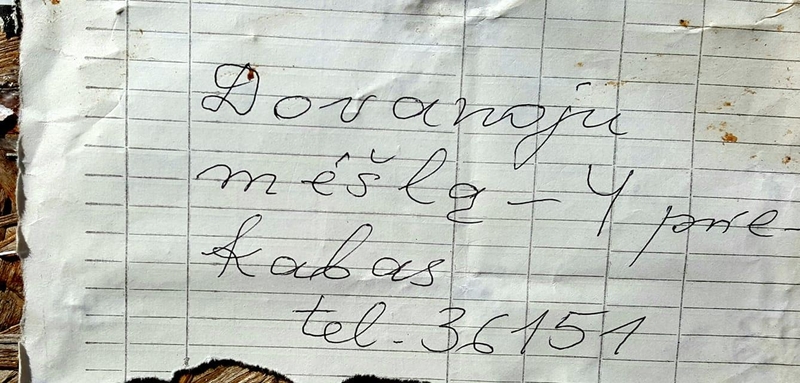 Dovanoju
mėšlą - 4 prie-
kabas
tel. 36151